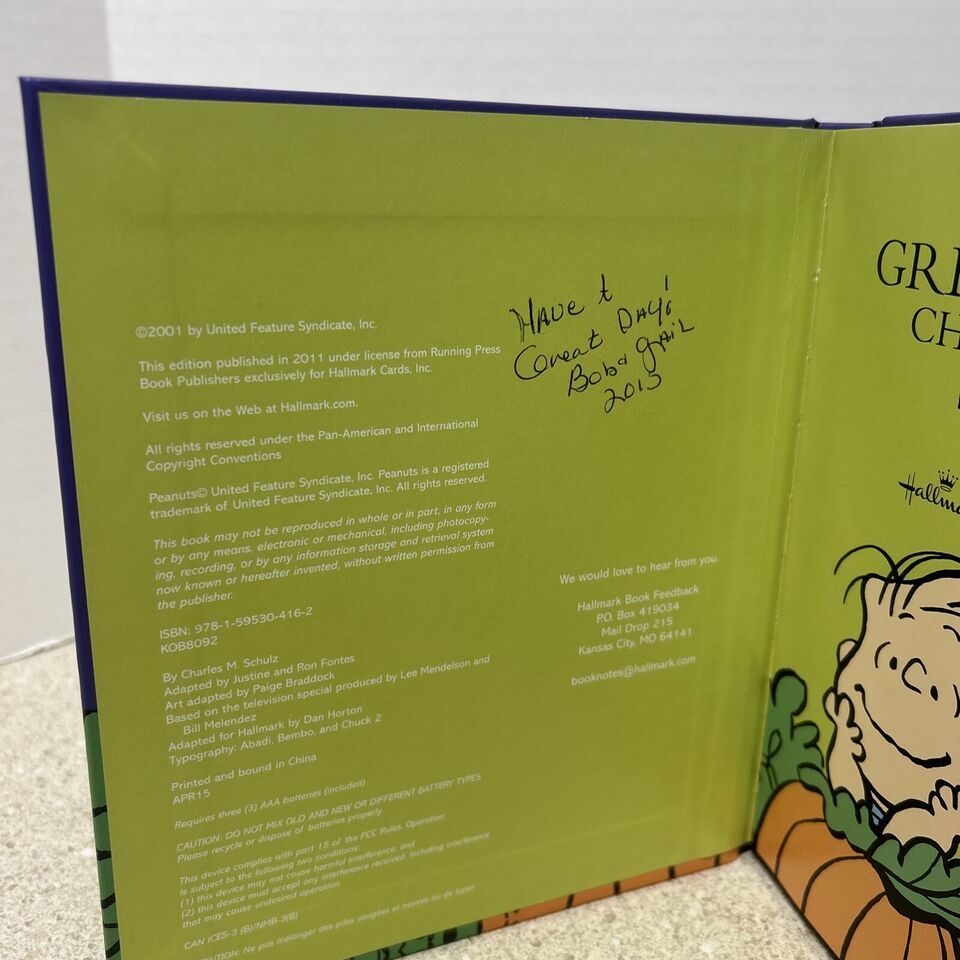 ©2001 by United Feature Syndicate, Inc.
This edition published in 2011 under license from Running Press
Book Publishers exclusively for Hallmark Cards, Inc.
Visit us on the Web at Hallmark.com.
All rights reserved under the Pan-American and International
Copyright Conventions
Peanuts© United Feature Syndicate, Inc. Peanuts is a registered
trademark of United Feature Syndicate, Inc. All rights reserved.
This book may not be reproduced in whole or in part, in any form
or by any means, electronic or mechanical, including photocopy-
ing, recording, or by any information storage and retrieval system
now known or hereafter invented, without written permission from
the publisher.
ISBN: 978-1-59530-416-2
KOB8092
By Charles M. Schulz
Adapted by Justine and Ron Fontes
Art adapted by Paige Braddock
Based on the television special produced by Lee Mendelson and
Bill Melendez
Adapted for Hallmark by Dan Horton
Typography: Abadi, Bembo, and Chuck 2
Printed and bound in China
APR15
Requires three (3) AAA batteries (included)
CAUTION: DO NOT MIX OLD AND NEW OR DIFFERENT BATTERY TYPES
Please recycle or dispose of batteries properly
This device complies with part 15 of the FCC Rules. Operation
is subject to the following two conditions:
(1) this device may not cause harmful interference, and
(2) this device must accept any interference received, including interference
that may cause undesired operation
CAN ICES-3 (B)/NMB-3(B)
TION: Ne pas mélanger des piles usagées et neuves ou de types
Have
Great Day!
Bob & Gail
2015
We would love to hear from you.
Hallmark Book Feedback
P.O. Box 419034
Mail Drop 215
Kansas City, MO 64141
booknotes@hallmark.com
GRE
CH
Hallm